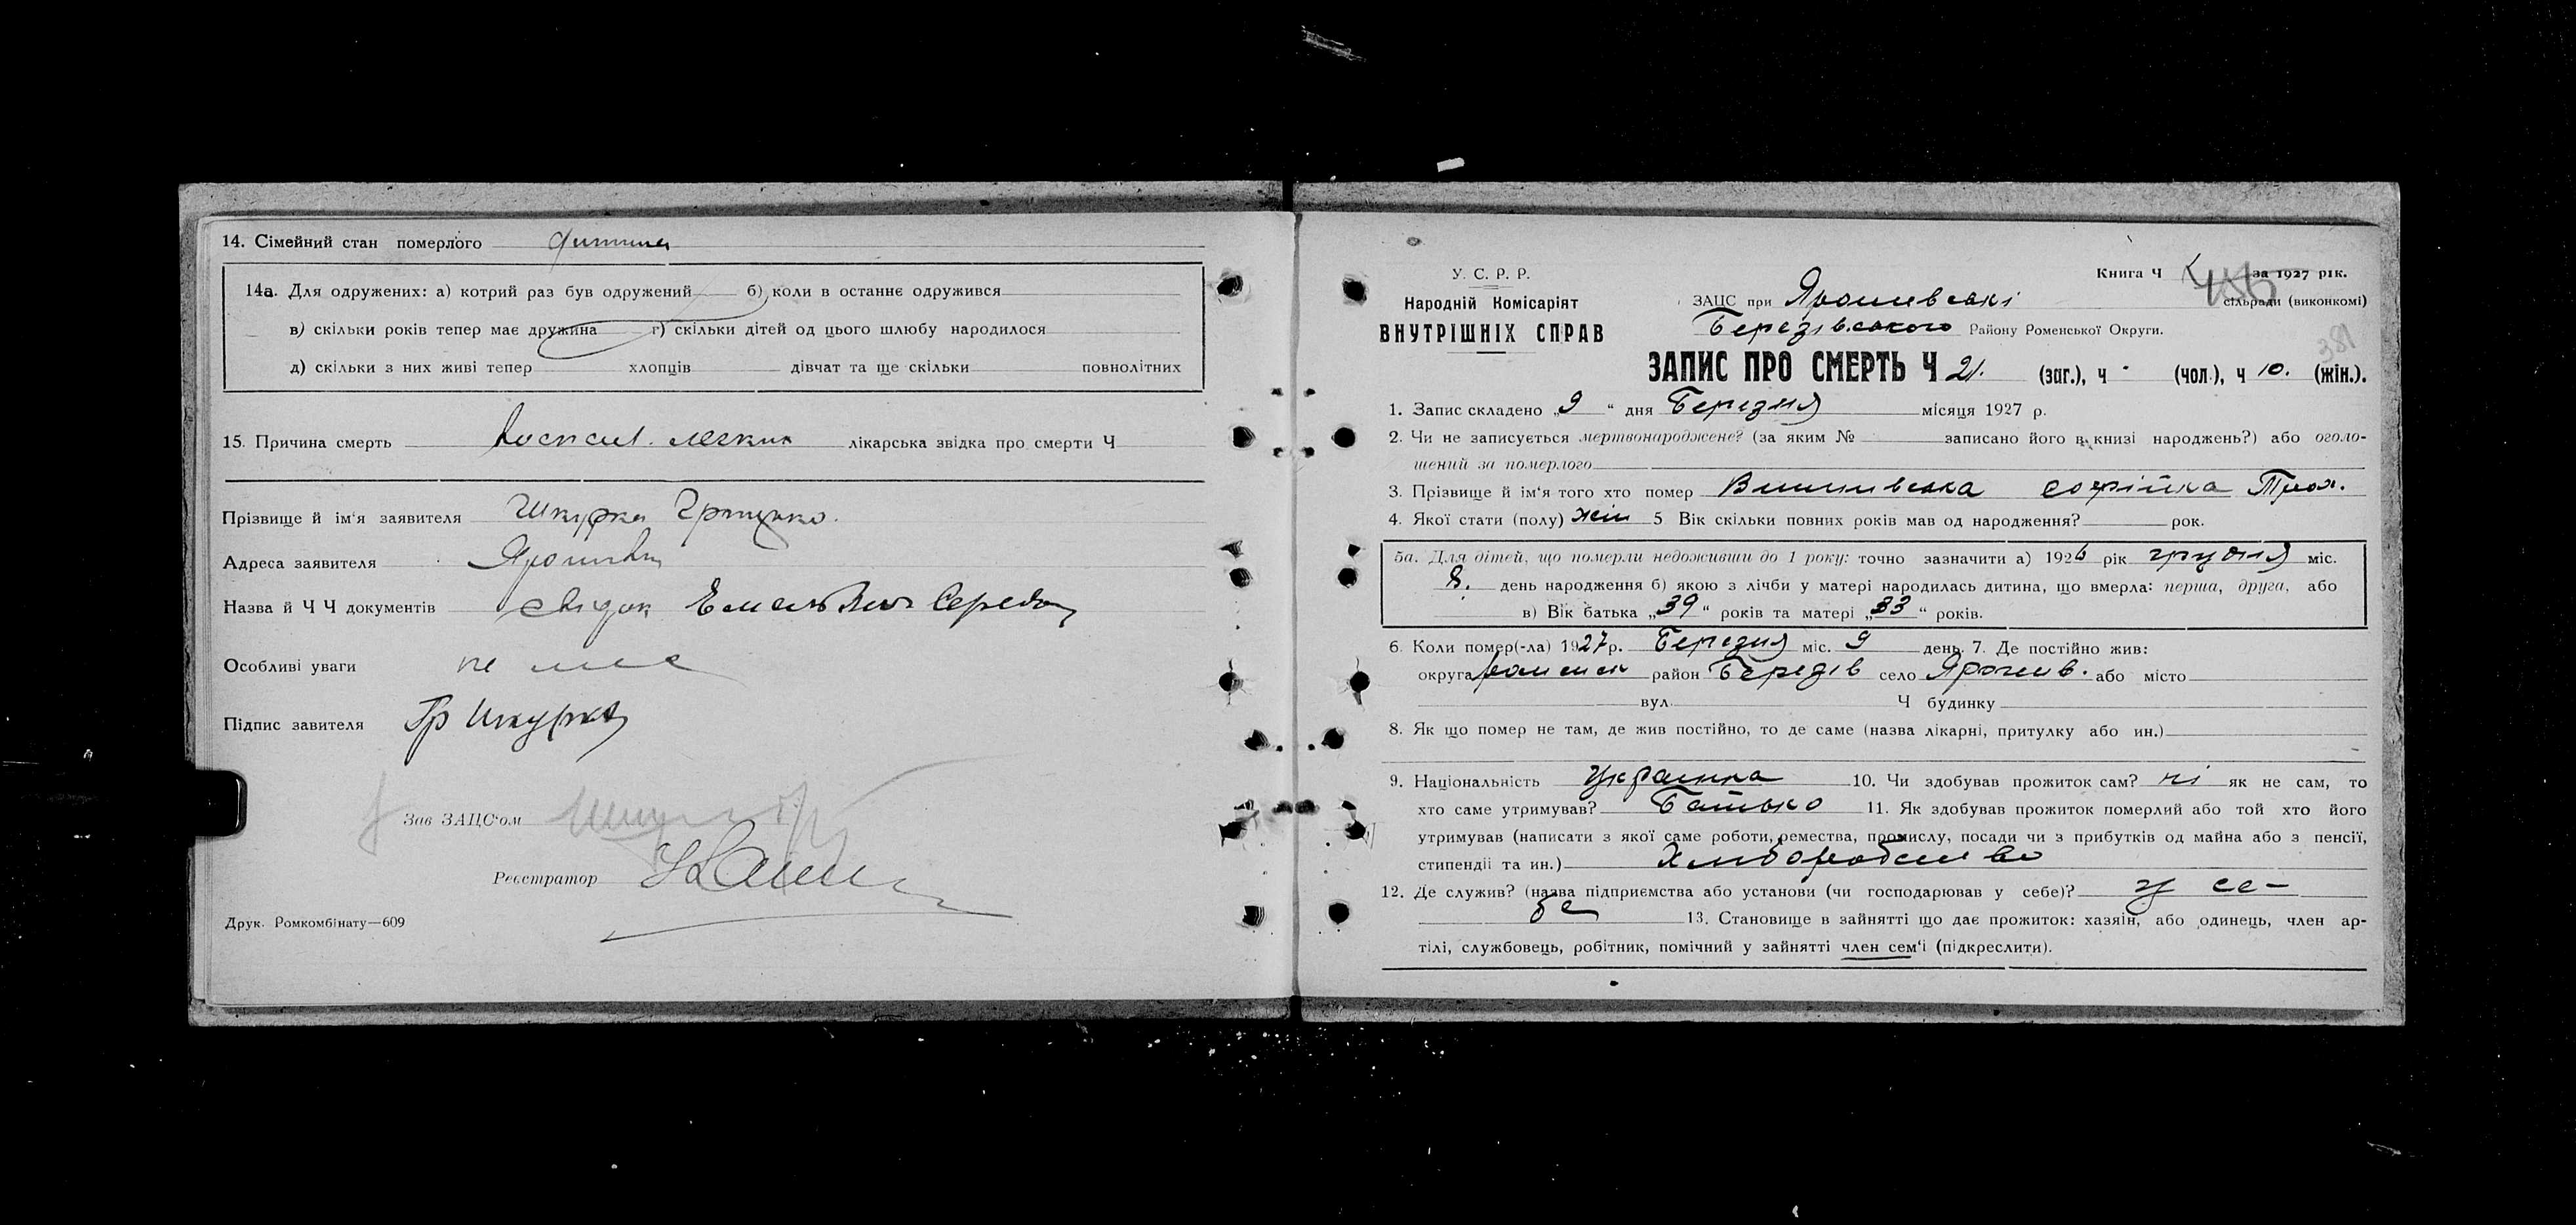 14. Сімейний стан померлого дитина
14а. Для одружених: а) котрий раз був одружений б) коли в останнє одружився
в) скільки років тепер має дружина г) скільки дітей од цього шлюбу народилося
д) скільки з них живі тепер хлопців дівчат та ще скільки повнолітних
15. Причина смерть воспал. легких лікарська звідка про смерти Ч
Прізвище й ім'я заявителя Шкурка Грицько.
Адреса заявителя Ярошівка
Назва й Ч Ч документів свідок Емельян Середа
Особливі уваги не має
Підпис завителя Гр Шкурка
Зав ЗАЦС'ом
Реєстратор
Друк. Ромкомбінату—609
У. С. Р. Р.
Народній Комісаріят
ВНУТРІШНІХ СПРАВ
Книга Ч за 1927 рік.
ЗАЦС при Ярошевські сільради (виконкомі)
Березівського Району Роменської Округи.
381
ЗАПИС ПРО СМЕРТЬ Ч 21. (заг.), ч - (чол.), ч 10. (жін.).
1. Запис складено „9" дня Березня місяця 1927 р.
2. Чи не записується мертвонароджене? (за яким № записано його в книзі народжень?) або оголо-
шений за померлого
3. Прізвище й ім'я того хто помер Вишнівська Софійка Трох.
4. Якої стати (полу) жін 5 Вік скільки повних років мав од народження? рок.
5а. Для дітей, що померли недоживши до 1 року: точно зазначити а) 1926 рік грудня міс.
8. день народження б) якою з лічби у матері народилась дитина, що вмерла: перша, друга, або
в) Вік батька „39" років та матері „33" років.
6. Коли помер(-ла) 1927 р. Березня міс. 9 день. 7. Де постійно жив:
округа Роменск район Березів село Ярошів. або місто
вул. Ч будинку
8. Як що помер не там, де жив постійно, то де саме (назва лікарні, притулку або ин.)
9. Національність Украинка 10. Чи здобував прожиток сам? ні як не сам, то
хто саме утримував? Батько 11. Як здобував прожиток померлий або той хто його
утримував (написати з якої саме роботи, ремества, промислу, посади чи з прибутків од майна або з пенсії,
стипендії та ин.) Хліборобство
12. Де служив? (назва підприємства або установи (чи господарював у себе)? у се-
бе 13. Становище в зайнятті що дає прожиток: хазяїн, або одинець, член ар-
тілі, службовець, робітник, помічний у зайнятті член сем'ї (підкреслити).